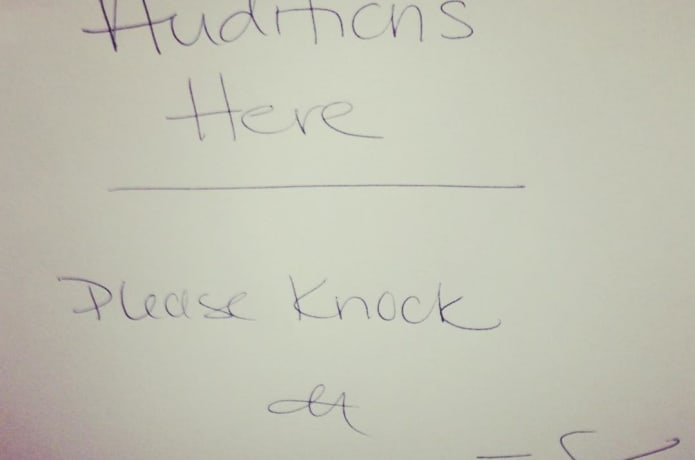 Auditions
Here
Please Knock